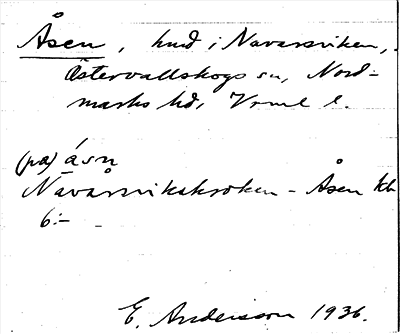 Åsen, hmd i Navarsviken,
Östervallskogs sn, Nord-
marks hd, Vrml l.
(på) åsn
Navarsvikskroken - Åsen kb
6:-
E. Andersson 1936.